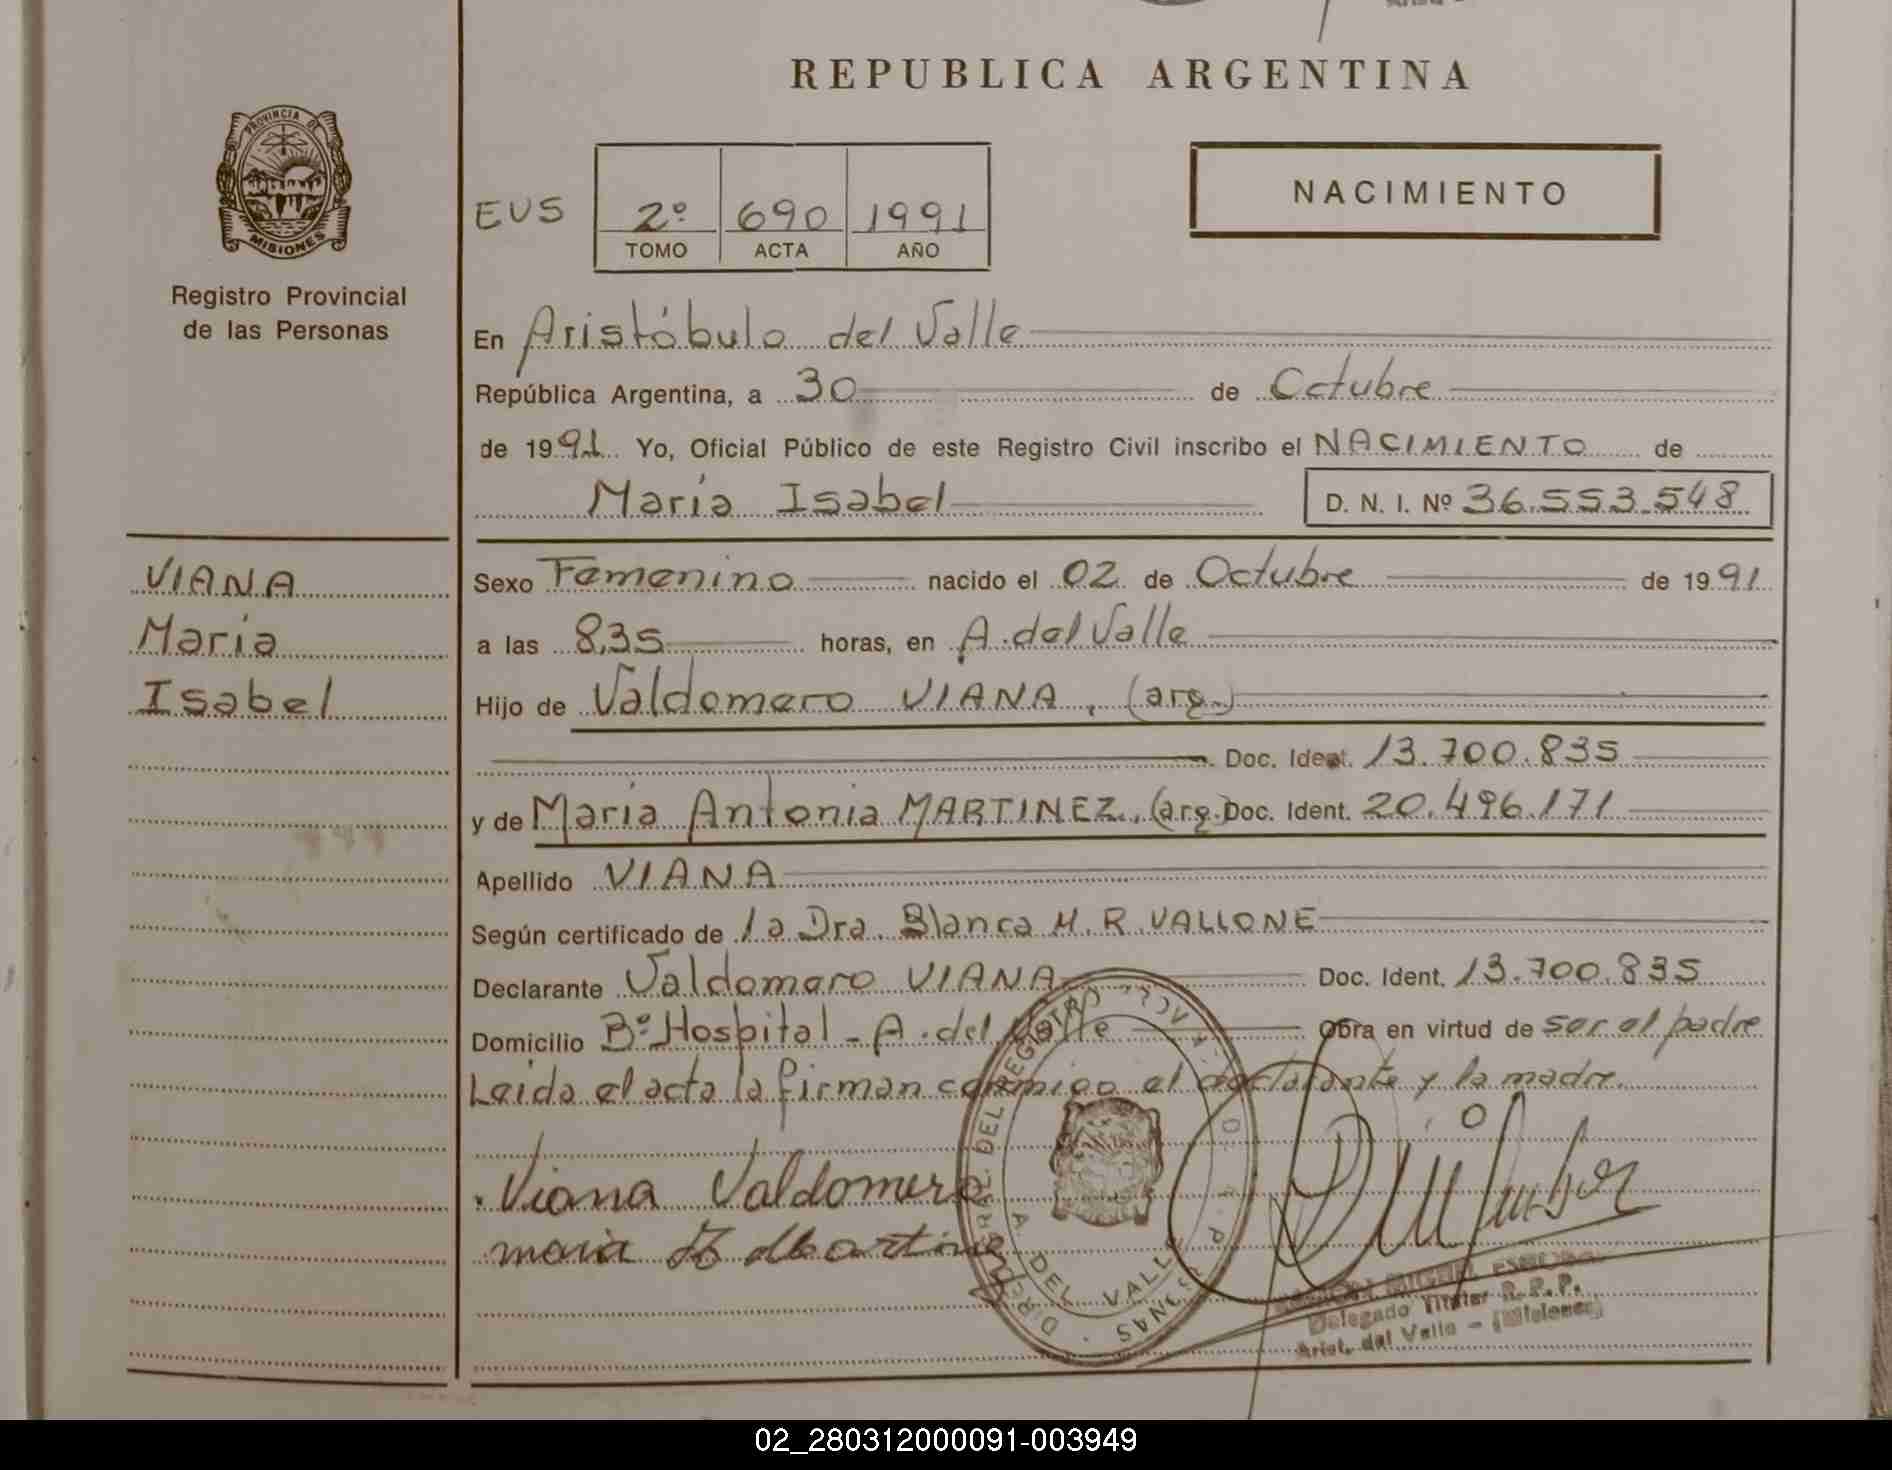 REPUBLICA ARGENTINA
PROVINCIA DE
MISIONES
Registro Provincial
de las Personas
EUS
2º 690 1991
TOMO ACTA AÑO
NACIMIENTO
En Aristóbulo del Valle
República Argentina, a 30 de Octubre
de 1991 Yo, Oficial Público de este Registro Civil inscribo el NACIMIENTO de
María Isabel D. N. I. Nº 36.553.548
VIANA
María
Isabel
Sexo Femenino nacido el 02 de Octubre de 1991
a las 8,35 horas, en A. del Valle
Hijo de Valdomero VIANA, (arg.)
Doc. Ident. 13.700.835
y de María Antonia MARTINEZ, (arg.) Doc. Ident. 20.496.171
Apellido VIANA
Según certificado de la Dra. Blanca M. R. VALLONE
Declarante Valdomero VIANA Doc. Ident. 13.700.835
Domicilio Bº Hospital - A. del Valle Obra en virtud de ser el padre
Leída el acta la firman conmigo el declarante y la madre.
Viana Valdomero
maria A Martinez
DEL REGISTRO
DEL VALLE
MIGUEL
Delegado Titular R.R.P.
Arist. del Valle - (Misiones)
02_280312000091-003949